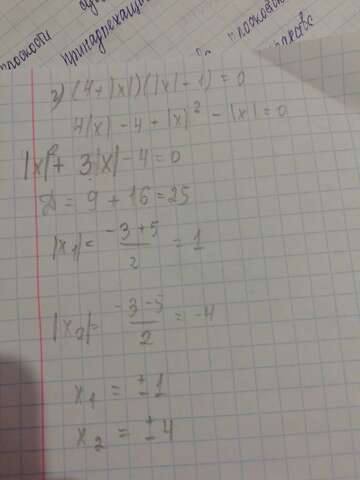 плоскости
принадлежащи
плоскост
г) (4+|x|)(|x|-1)=0
4|x|-4+|x|²-|x|=0
|x|²+3|x|-4=0
Д=9+16=25
|x₁|=(-3+5)/2=1
|x₂|=(-3-5)/2=-4
x₁=±1
x₂=±4